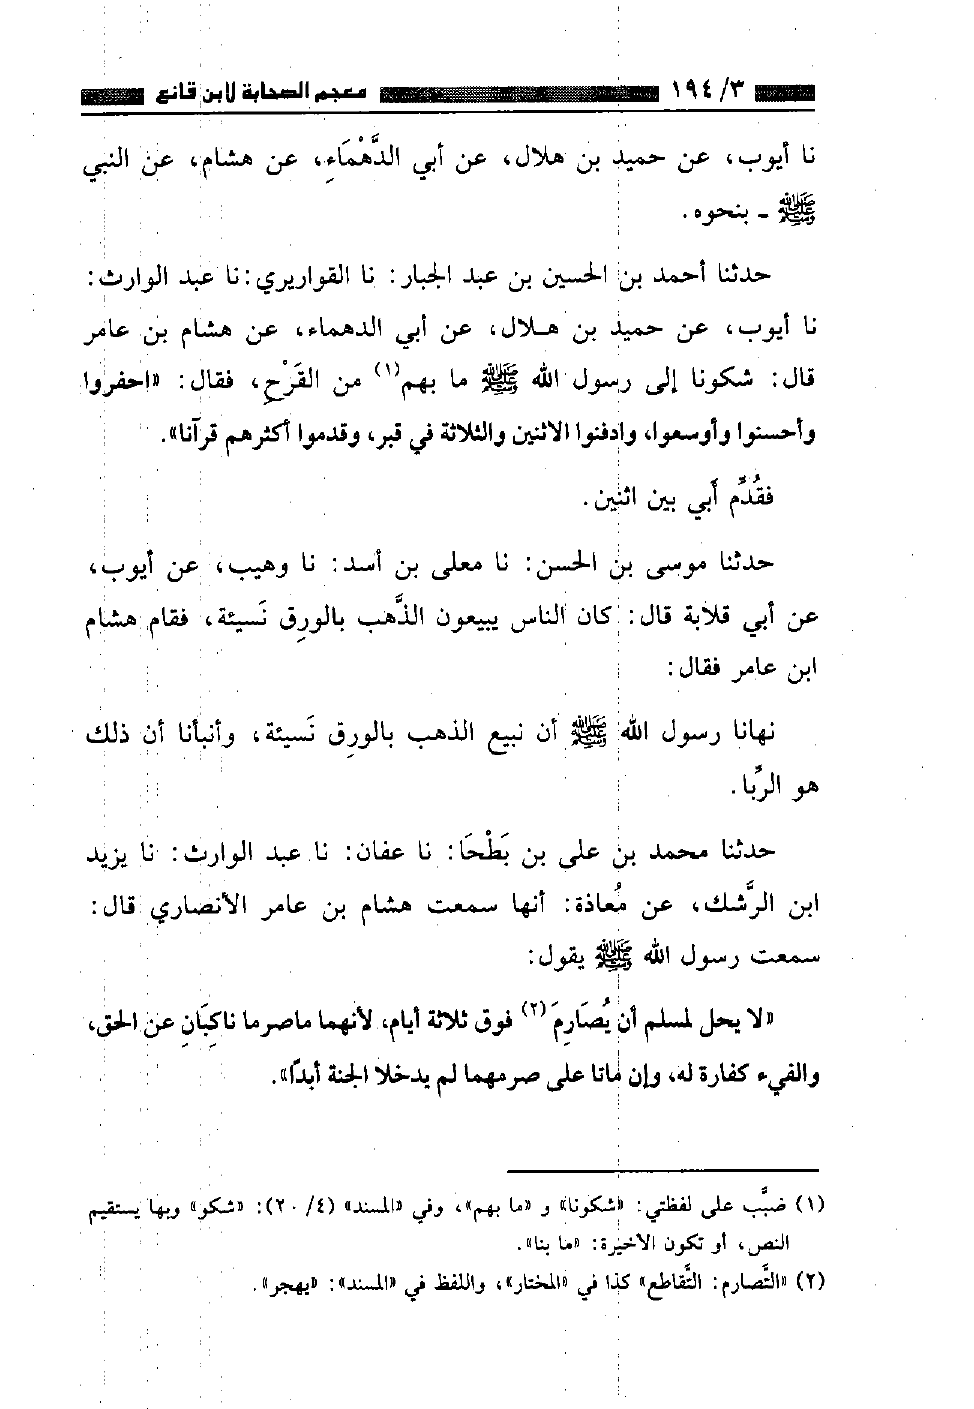 ٣/ ١٩٤ معجم الصحابة لابن قانع
نا أيوب، عن حميد بن هلال، عن أبي الدَّهْمَاءِ، عن هشام، عن النبي
ﷺ ـ بنحوه.
حدثنا أحمد بن الحسين بن عبد الجبار: نا القواريري: نا عبد الوارث:
نا أيوب، عن حميد بن هـلال، عن أبي الدهماء، عن هشام بن عامر
قال: شكونا إلى رسول الله ﷺ ما بهم(١) من القَرْحِ، فقال: «احفروا
وأحسنوا وأوسعوا، وادفنوا الاثنين والثلاثة في قبر، وقدموا أكثرهم قرآنا».
فقُدِّم أَبي بين اثنين.
حدثنا موسى بن الحسن: نا معلى بن أسد: نا وهيب، عن أيوب،
عن أبي قلابة قال: كان الناس يبيعون الذَّهب بالورِق نَسيئة، فقام هشام
ابن عامر فقال:
نهانا رسول الله ﷺ أن نبيع الذهب بالورِق نَسيئة، وأنبأنا أن ذلك
هو الرِّبا.
حدثنا محمد بن علي بن بَطْحَا: نا عفان: نا عبد الوارث: نا يزيد
ابن الرَّشك، عن مُعاذة: أنها سمعت هشام بن عامر الأنصاري قال:
سمعت رسول الله ﷺ يقول:
«لا يحل لمسلم أن يُصَارِمَ(٢) فوق ثلاثة أيام، لأنهما ماصرما ناكِبَانِ عن الحق،
والفيء كفارة له، وإن ماتا على صرمهما لم يدخلا الجنة أبدًا».
(١) ضبَّب على لفظتي: «شكونا» و «ما بهم»، وفي «المسند» (٤/ ٢٠): «شكو» وبها يستقيم
النص، أو تكون الأخيرة: «ما بنا».
(٢) «التَّصارم: التَّقاطع» كذا في «المختار»، واللفظ في «المسند»: «يهجر».